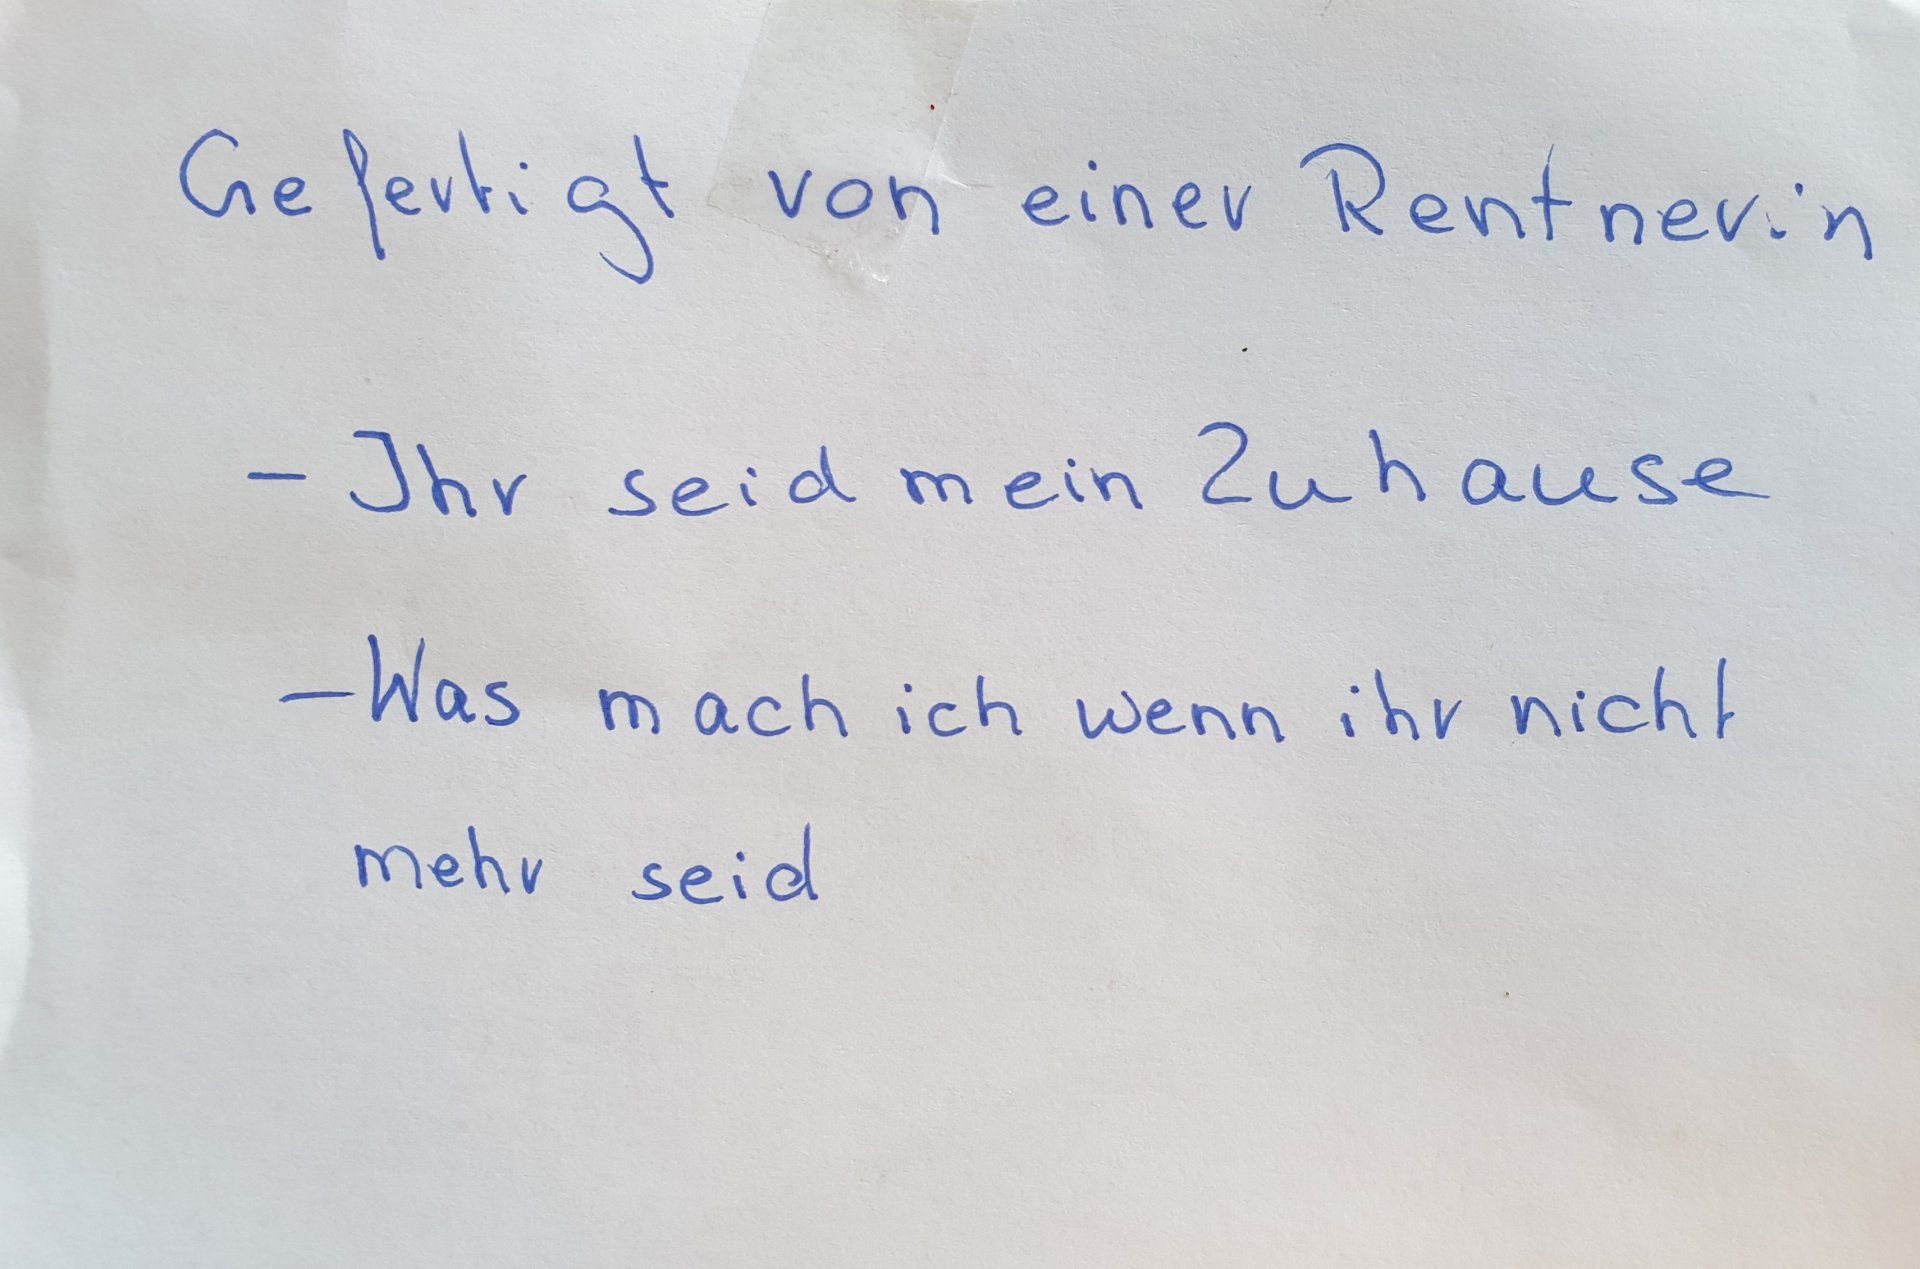 Gefertigt von einer Rentnerin
- Ihr seid mein Zuhause
- Was mach ich wenn ihr nicht
mehr seid